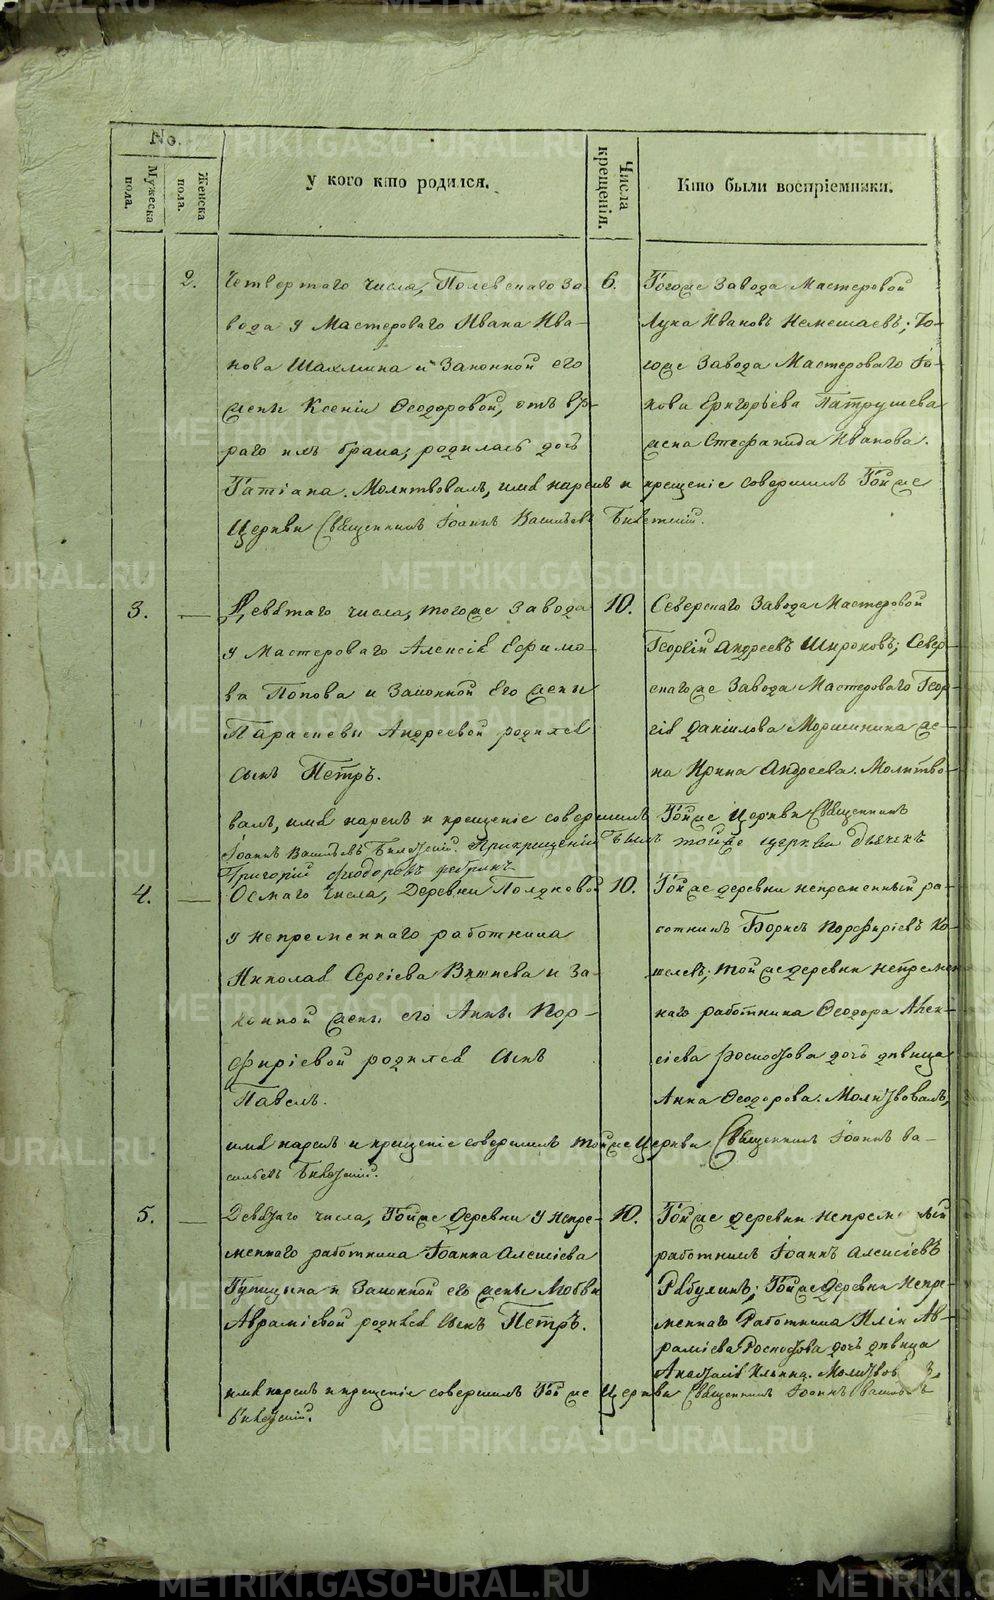 No.
Мужеска пола.
Женска пола.
у кого кто родился.
Числа крещенія.
Кто были воспріемники.
2.
Четвертаго числа, Полевскаго за-
вода у Мастероваго Ивана Ива-
нова Шахмина и Законной его
жены Ксеніи Ѳеодоровой, отъ вто-
раго ихъ брака, родилась дочь
Татіана. Молитвовалъ, имя нарекъ и крещеніе совершилъ Тойже
Церкви Священникъ Іоаннъ Васильевъ
6.
Тогоже Завода Мастеровой
Лука Ивановъ Немешаевъ; То-
гоже Завода Мастероваго Іа-
кова Григорьева Патрушева
жена Стефанида Иванова.
3.
Девятаго числа, тогоже Завода
у Мастероваго Алексія Ефимо-
ва Попова и Законной его жены
Параскевы Андреевой родился
сынъ Петръ.
10.
Северскаго Завода Мастеровой
Георгій Андреевъ Широковъ; Север-
скагоже Завода Мастероваго Геор-
гія Даніилова Моршинина же-
на Ирина Андреева. Молитво-
валъ, имя нарекъ и крещеніе совершилъ Тойже Церкви Священникъ
Іоаннъ Васильевъ Прикрещеніи былъ тойже церкви дьячекъ
Григорій Феодоровъ
4.
Осмаго числа, Деревни Полдневой
у непременнаго работника
Николая Сергіева Вяткева и За-
конной жены его Анны Пор-
фиріевой родился сынъ
Павелъ.
10.
Тойже деревни непременный ра-
ботникъ Борисъ Порфиріевъ Ко-
шелевъ; тойже деревни непремен-
наго работника Ѳеодора Алек-
сіева дочь девица
Анна Ѳеодорова. Молитвовалъ,
имя нарекъ и крещеніе совершилъ тойже Церкви Священникъ Іоаннъ Ва-
сильевъ
5.
Девятаго числа, Тойже Деревни у непре-
меннаго работника Іоанна Алексіева
и Законной его жены Любви
Авраміевой родился сынъ Петръ.
10.
Тойже деревни непременный
работникъ Іоаннъ Алексіевъ
Рябухинъ; Тойже деревни непре-
меннаго Работника Иліи Ав-
раміева дочь девица
Анастасія Ильина.
имя нарекъ и крещеніе совершилъ Тойже Церкви Священникъ Іоаннъ Васильевъ
METRIKI.GASO-URAL.RU